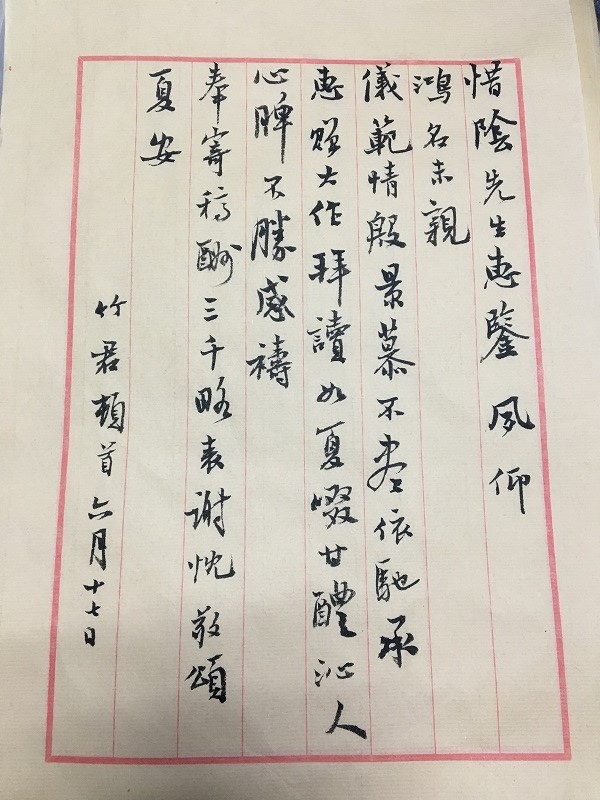 惜陰先生惠鑒夙仰
鴻名未親
儀範情殷景慕不盡依馳承
惠贈大作拜讀如夏啜甘醴沁人
心脾不勝感禱
奉寄稿酬三千略表謝忱敬頌
夏安
竹君頓首六月十七日